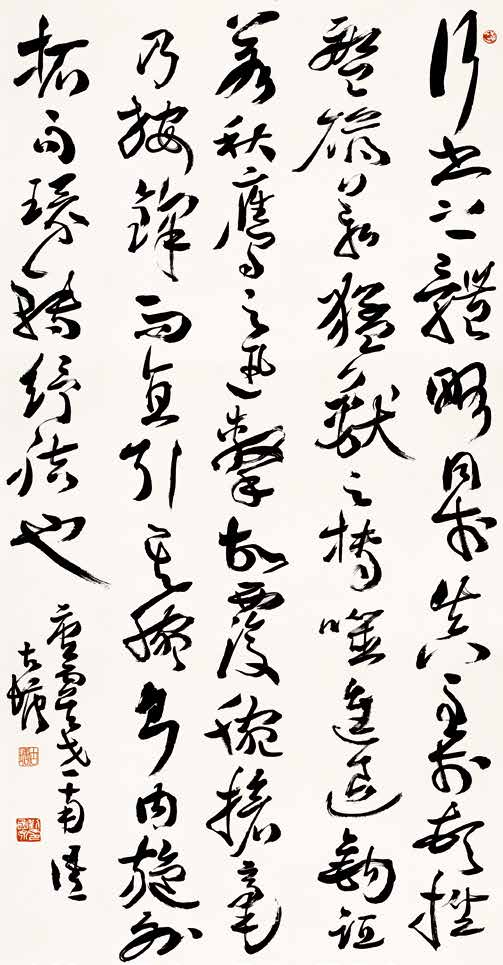 行書之體略同於真至於頓挫
盤礴若猛獸之搏噬進退鉤距
若秋鷹之迅擊故覆腕搶毫
乃按鋒而直引其腕則內旋外
拓而環轉紓結也
唐虞世南語